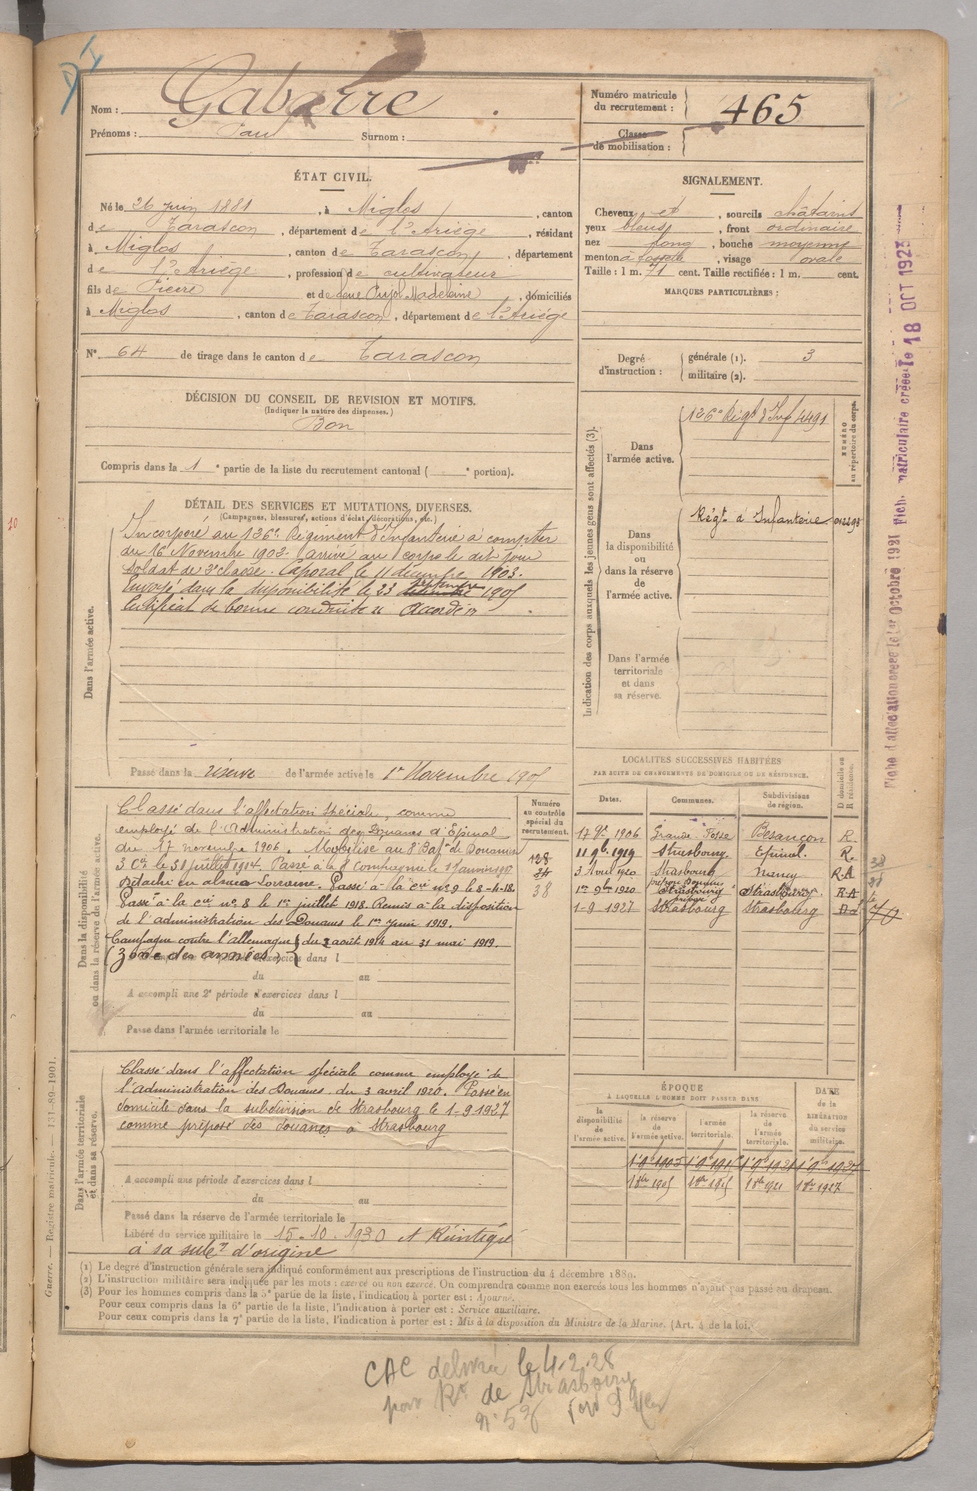 Nom : Gabarre
Prénoms : Paul Surnom :
Numéro matricule du recrutement : 465
Classe de mobilisation :
ÉTAT CIVIL.
Né le 26 juin 1881, à Miglos, canton
de Tarascon, département de l'Ariège, résidant
à Miglos, canton de Tarascon, département
de l'Ariège, profession de cultivateur
fils de Pierre et de feue Pujol Madeleine, domiciliés
à Miglos, canton de Tarascon, département de l'Ariège
N° 64 de tirage dans le canton de Tarascon
SIGNALEMENT.
Cheveux et, sourcils châtains
yeux bleus, front ordinaire
nez long, bouche moyenne
menton à fossette, visage ovale
Taille : 1 m. 71 cent. Taille rectifiée : 1 m. cent.
MARQUES PARTICULIÈRES :
Degré d'instruction : générale (1). 3
militaire (2).
DÉCISION DU CONSEIL DE REVISION ET MOTIFS.
(Indiquer la nature des dispenses.)
Bon
Compris dans la 1e partie de la liste du recrutement cantonal ( e portion).
DÉTAIL DES SERVICES ET MUTATIONS DIVERSES.
(Campagnes, blessures, actions d'éclat, décorations, etc.)
Dans l'armée active.
Incorporé au 126e Régiment d'Infanterie à compter
du 16 Novembre 1902. arrivé au corps le dit jour
soldat de 2e classe. Caporal le 11 décembre 1903.
Envoyé dans la disponibilité le 23 septembre 1905
Certificat de bonne conduite "Accordé"
Passé dans la réserve de l'armée active le 1er Novembre 1905
Indication des corps auxquels les jeunes gens sont affectés (3).
NUMÉRO au répertoire du corps.
Dans l'armée active.
126e Régt d'Inf 4491
Dans la disponibilité ou dans la réserve de l'armée active.
Régt d'Infanterie
Dans l'armée territoriale et dans sa réserve.
Dans la disponibilité ou dans la réserve de l'armée active.
Numéro au contrôle spécial du recrutement.
Classé dans l'affectation spéciale, comme
employé de l'Administration des Douanes d'Epinal
du 17 novembre 1906. Mobilisé au 8e Bat. de Douanes
3 Cie le 31 juillet 1914. Passé à la 8e Compagnie le 1 Janvier
Détaché en alsace Lorraine. Passé à la Cie n° 9 le 8-4-18.
Passé à la Cie n° 8 le 1er juillet 1918. Remis à la disposition
de l'administration des Douanes le 1er Juin 1919.
Campagne contre l'allemagne du 2 août 1914 au 31 mai 1919.
(zone des armées)
38
du au
A accompli une 2e période d'exercices dans l
du au
Passé dans l'armée territoriale le
LOCALITÉS SUCCESSIVES HABITÉES
PAR SUITE DE CHANGEMENTS DE DOMICILE OU DE RÉSIDENCE.
Dates. Communes. Subdivisions de région. D domicile ou R résidence.
17 9bre 1906 Grande Fosse Besançon R.
11 9b. 1919 Strasbourg Epinal R.
3 Avril 1920 Strasbourg Nancy R.A
1er 9bre 1920 Strasbourg Strasbourg R.A
1-9 1927 Strasbourg Strasbourg
Dans l'armée territoriale et dans sa réserve.
Classé dans l'affectation spéciale comme employé de
l'Administration des Douanes du 3 avril 1920. Passé en
domicile dans la subdivision de Strasbourg le 1-9 1927
comme préposé des douanes à Strasbourg
A accompli une période d'exercices dans l
du au
Passé dans la réserve de l'armée territoriale le
Libéré du service militaire le 15-10-1930 et Réintégré
à sa subon d'origine
ÉPOQUE
À LAQUELLE L'HOMME DOIT PASSER DANS
la disponibilité de l'armée active. la réserve de l'armée active. l'armée territoriale. la réserve de l'armée territoriale. DATE de la LIBÉRATION du service militaire.
(1) Le degré d'instruction générale sera indiqué conformément aux prescriptions de l'instruction du 4 décembre 1889.
(2) L'instruction militaire sera indiquée par les mots : exercé ou non exercé. On comprendra comme non exercés tous les hommes n'ayant pas passé au drapeau.
(3) Pour les hommes compris dans la 5e partie de la liste, l'indication à porter est : Ajourné.
Pour ceux compris dans la 6e partie de la liste, l'indication à porter est : Service auxiliaire.
Pour ceux compris dans la 7e partie de la liste, l'indication à porter est : Mis à la disposition du Ministre de la Marine. (Art. 4 de la loi.
Guerre. — Registre matricule. — 131-89-1901.
Fiche d'affectation créée le 1er Octobre 1921 Fiche matriculaire créée le 18 OCT 1923
CAC délivrée le 4.2.28
pour Rt de Strasbourg